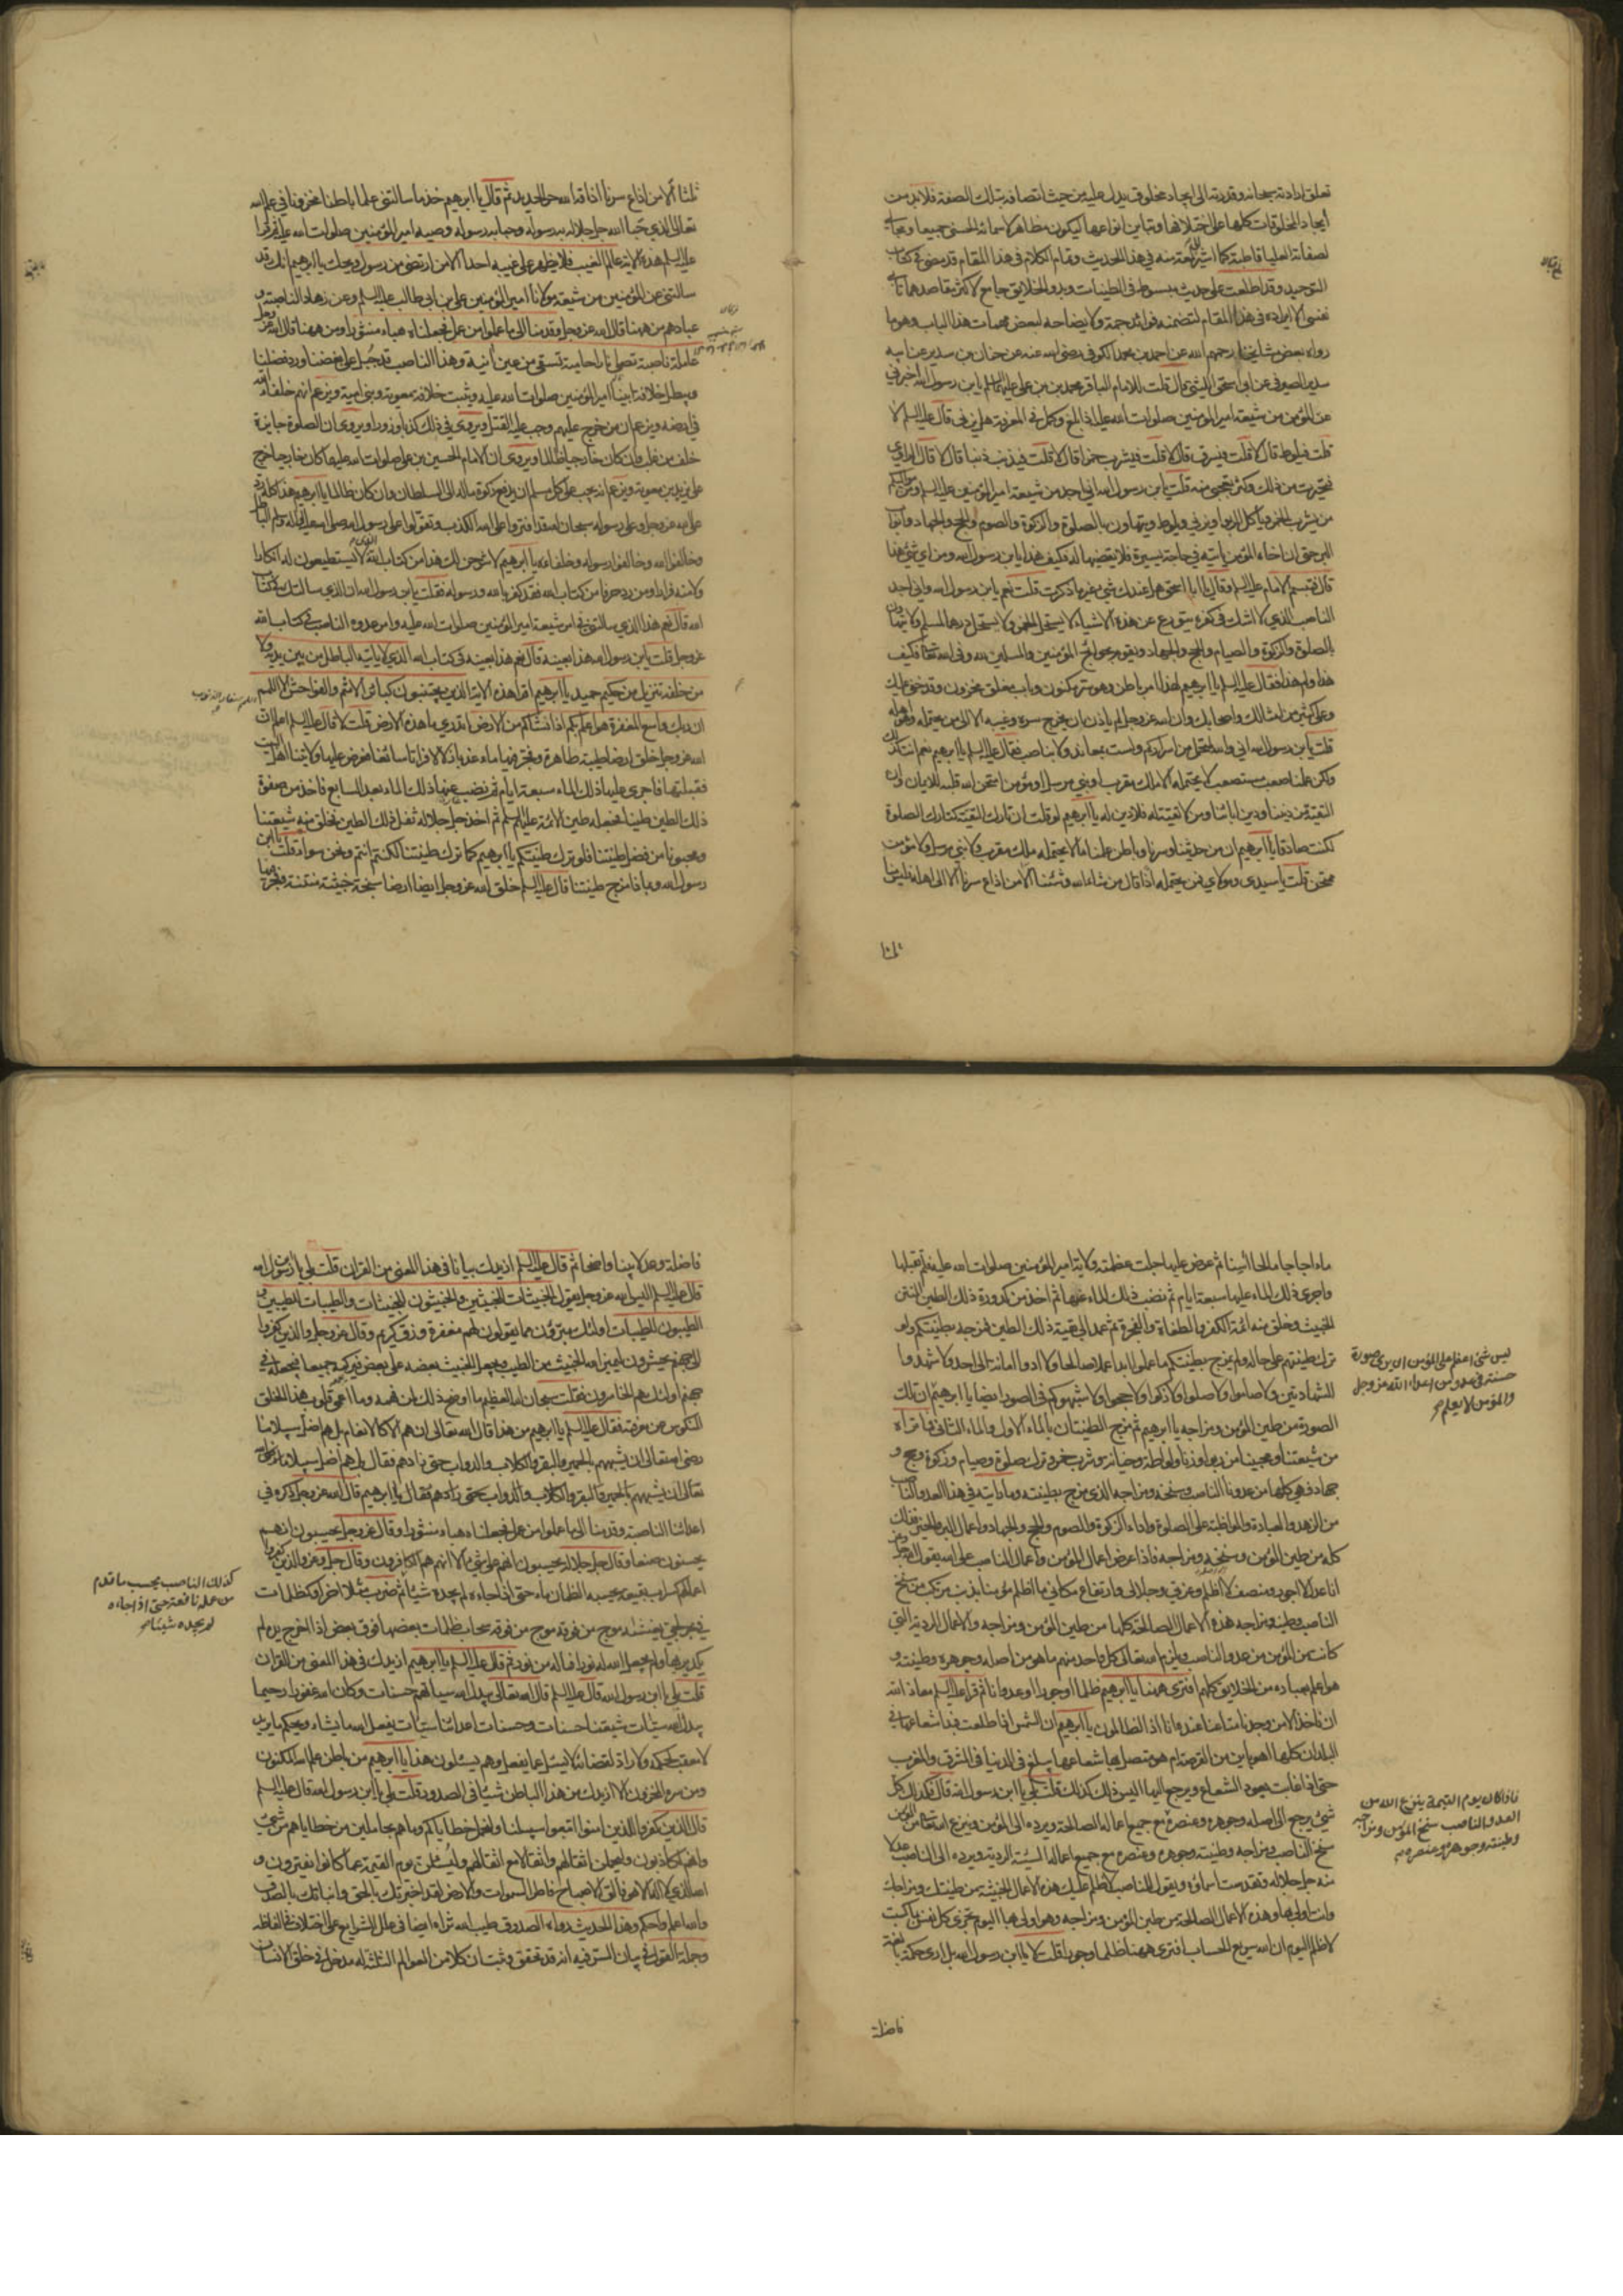 تعلق ارادته سبحانه وقدرته الى ايجاد مخلوق يدل عليه من حيث اتصافه بتلك الصفة فلابد من
ايجاد المخلوقات كلها على اختلافها وتباين انواعها ليكون مظاهر لاسمائه الحسنى جميعا ومجالي
لصفاته العليا قاطبة كما اشير لمعة منه في هذا الحديث وتمام الكلام في هذا المقام قد مضى في كتاب
التوحيد وقد اطلعت على حديث مبسوط في الطينات وبدو الخلايق جامع لاكثر مقاصد هذا
نفسى الا ايراده في هذا المقام لتضمنه فوائد جمة ولايضاحه لبعض مبهمات هذا الباب وهو ما
رواه بعض مشايخنا رحمهم الله عن احمد بن محمد الكوفي رضي الله عنه عن حنان بن سدير عن ابيه
سدير الصيرفي عن ابي اسحق الليثي قال قلت للامام الباقر محمد بن علي عليهما السلام يا ابن رسول الله اخبرني
عن المؤمن من شيعة امير المؤمنين صلوات الله عليه اذا بلغ وكمل في المعرفة هل يزني قال عليه السلام لا
قلت فيلوط قال لا قلت فيسرق قال لا قلت فيشرب خمرا قال لا قلت فيذنب ذنبا قال لا قال الراوي
فتحيرت من ذلك وكثر تعجبي منه قلت يا ابن رسول الله اني اجد من شيعة امير المؤمنين عليه السلام ومن مواليكم
من يشرب الخمر وياكل الربوا ويزني ويلوط ويتهاون بالصلوة والزكوة والصوم والحج والجهاد وابواب
البر حتى ان اخاه المؤمن ياتيه في حاجة يسيرة فلا يقضيها له فكيف هذا يا ابن رسول الله ومن اي شئ هذا
قال فتبسم الامام عليه السلام وقال يا ابا اسحق هل عندك شئ غير ما ذكرت قلت نعم يا ابن رسول الله واني اجد
الناصب الذي لا اشك في كفره يتورع عن هذه الاشياء لا يستحل الخمر ولا يستحل درهما لمسلم ولا يتهاون
بالصلوة والزكوة والصيام والحج والجهاد ويقوم بحوائج المؤمنين والمسلمين لله وفي الله تعالى فكيف
هذا ولم هذا فقال عليه السلام يا ابرهيم لهذا امر باطن وهو سر مكنون وباب مغلق مخزون وقد خفي عليك
وعلى كثير من امثالك واصحابك وان الله عز وجل لم ياذن ان يخرج سره وغيبه الا الى من يحتمله وهو اهله
قلت يا ابن رسول الله اني والله لمحتمل من اسراركم ولست بمعاند ولا بناصب فقال عليه السلام يا ابرهيم نعم انت كذلك
ولكن علمنا صعب مستصعب لا يحتمله الا ملك مقرب او نبي مرسل او مؤمن امتحن الله قلبه للايمان وان
التقية من ديننا ودين ابائنا ومن لا تقية له فلا دين له يا ابرهيم لو قلت ان تارك التقية كتارك الصلوة
لكنت صادقا يا ابرهيم ان من حديثنا وسرنا وباطن علمنا ما لا يحتمله ملك مقرب ولا نبي مرسل ولا مؤمن
ممتحن قلت يا سيدي ومولاي فمن يحتمله اذا قال من شاء الله وشئنا الا من اذاع سرنا الا الى اهله فليس منا
ثلثا
ثلثا الا من اذاع سرنا اذاقه الله حر الحديد ثم قال يا ابرهيم خذ ما سالتني علما باطنا مخزونا في علم الله
تعالى الذي حبا الله جل جلاله به رسوله وحبا به رسوله وصيه امير المؤمنين صلوات الله عليه ثم قرأ
عليه السلم هذه الاية عالم الغيب فلا يظهر على غيبه احدا الا من ارتضى من رسول ويحك يا ابرهيم انك قد
سالتني عن المؤمنين من شيعة مولانا امير المؤمنين علي بن ابي طالب عليه السلم وعن زهاد الناصبة و
عبادهم من ههنا قال الله عز وجل وقدمنا الى ما عملوا من عمل فجعلناه هباء منثورا ومن ههنا قال الله عز وجل
عاملة ناصبة تصلى نارا حامية تسقى من عين آنية وهذا الناصب قد جبل على بغضنا ورد فضلنا
ويبطل خلافة ابينا امير المؤمنين صلوات الله عليه ويثبت خلافة معوية وبني امية ويزعم انهم خلفاء الله
في ارضه ويزعم ان من خرج عليهم وجب عليه القتل ويروي في ذلك كذبا وزورا ويروي ان الصلوة جايزة
خلف من غلب وان كان خارجيا ظالما ويروي ان الامام الحسين بن علي صلوات الله عليهما كان خارجيا خرج
على يزيد بن معوية ويزعم انه يجب على كل مسلم ان يدفع زكوة ماله الى السلطان وان كان ظالما يا ابرهيم هذا كله رد
على الله عز وجل وعلى رسوله سبحان الله قد افتروا على الله الكذب وتقولوا على رسول الله صلى الله عليه واله الباطل
وخالفوا الله وخالفوا رسوله وخلفاءه يا ابرهيم لاشرحن لك هذا من كتاب الله الذي لا يستطيعون له انكارا
ولا منه فرارا ومن رد حرفا من كتاب الله فقد كفر بالله ورسوله فقلت يا ابن رسول الله ان الذي سالتك في كتاب
الله قال نعم هذا الذي سالتني في امر شيعة امير المؤمنين صلوات الله عليه وامر عدوه الناصب في كتاب الله
عز وجل قلت يا ابن رسول الله هذا بعينه قال نعم هذا بعينه في كتاب الله الذي لا ياتيه الباطل من بين يديه ولا
من خلفه تنزيل من حكيم حميد يا ابرهيم اقرأ هذه الاية الذين يجتنبون كبائر الاثم والفواحش الا اللمم
ان ربك واسع المغفرة هو اعلم بكم اذ انشأكم من الارض اتدري ما هذه الارض قلت لا قال عليه السلم اعلم ان
الله عز وجل خلق ارضا طيبة طاهرة وفجر فيها ماء عذبا زلالا فراتا سائغا فعرض عليها ولايتنا اهل البيت
فقبلتها فاجرى عليها ذلك الماء سبعة ايام ثم نضب عنها ذلك الماء بعد السابع فاخذ من صفوة
ذلك الطين طينا فجعله طين الائمة عليهم السلم ثم اخذ جل جلاله ثفل ذلك الطين فخلق منه شيعتنا
ومحبونا من فضل طينتنا فلو ترك طينتكم يا ابرهيم كما ترك طينتنا لكنتم انتم ونحن سواء قلت يا ابن
رسول الله وبما ذا مزج طينتنا قال عليه السلم خلق الله عز وجل ايضا ارضا سبخة خبيثة منتنة وفجر فيها
ماء اجاجا مالحا آسنا ثم عرض عليها جلت عظمته ولاية امير المؤمنين صلوات الله عليه فلم تقبلها
واجرى ذلك الماء عليها سبعة ايام ثم نضب ذلك الماء عنها ثم اخذ من كدورة ذلك الطين المنتن
الخبيث وخلق منه ائمة الكفر والطغاة والفجرة ثم عمد الى بقية ذلك الطين فمزجه بطينتكم ولو
ترك طينتهم على حاله ولم يمزج بطينتكم ما عملوا ابدا عملا صالحا ولا ادوا امانة الى احد ولا شهدوا
الشهادتين ولا صاموا ولا صلوا ولا زكوا ولا حجوا ولا شبهوكم في الصور ايضا يا ابرهيم ان تلك
ليس شئ اعظم على المؤمن ان يرى صورة
حسنة في عدو من اعداء الله عز وجل
والمؤمن لا يعلم
الصورة من طين المؤمن ومزاجه يا ابرهيم ثم مزج الطينتان بالماء الاول والماء الثاني فما تراه
من شيعتنا ومحبينا من ربوا وزنا ولواطة وخيانة وشرب خمر وترك صلوة وصيام وزكوة وحج و
جهاد فهي كلها من عدونا الناصب وسنخه ومزاجه الذي مزج بطينته وما رايته في هذا العدو الناصب
من الزهد والعبادة والمواظبة على الصلوة واداء الزكوة والصوم والحج والجهاد واعمال البر والخير فذلك
كله من طين المؤمن وسنخه ومزاجه فاذا عرض اعمال المؤمن واعمال الناصب على الله يقول الله عز وجل
انا عدل لا اجور ومنصف لا اظلم وعزتي وجلالي وارتفاع مكاني ما اظلم مؤمنا بذنب مرتكب من سنخ
الناصب وطينه ومزاجه هذه الاعمال الصالحة كلها من طين المؤمن ومزاجه والاعمال الردية التي
كانت من المؤمن من طين العدو الناصب ويلزم الله تعالى كل واحد منهم ما هو من اصله وجوهره وطينته و
هو اعلم بعباده من الخلائق كلهم افترى ههنا يا ابرهيم ظلما او جورا او عدوانا ثم قرأ عليه السلم معاذ الله
ان ناخذ الا من وجدنا متاعنا عنده انا اذا لظالمون يا ابرهيم ان الشمس اذا طلعت فبدا شعاعها في
البلدان كلها اهو باين من القرصة ام هو متصل بها شعاعها يبلغ في الدنيا في المشرق والمغرب
حتى اذا غابت يعود الشعاع ويرجع اليها اليس ذلك كذلك قلت بلى يا ابن رسول الله قال فكذلك كل
شئ يرجع الى اصله وجوهره وعنصره
فاذا كان يوم القيمة ينزع الله من
العدو الناصب سنخ المؤمن ومزاجه
وطينته وجوهره وعنصره
مع جميع اعماله الصالحة ويرده الى المؤمن وينزع الله تعالى من المؤمن
سنخ الناصب ومزاجه وطينته وجوهره وعنصره مع جميع اعماله السيئة الردية ويرده الى الناصب عدلا
منه جل جلاله وتقدست اسماؤه ويقول للناصب لا ظلم عليك هذه الاعمال الخبيثة من طينتك ومزاجك
وانت اولى بها وهذه الاعمال الصالحة من طين المؤمن ومزاجه وهو اولى بها اليوم تجزى كل نفس بما كسبت
لا ظلم اليوم ان الله سريع الحساب افترى ههنا ظلما وجورا قلت لا يا ابن رسول الله بل ارى حكمة بالغة
فاضلة
فاضلة وعدلا بينا واضحا ثم قال عليه السلم ازيدك بيانا في هذا المعنى من القران قلت بلى يا ابن رسول الله
قال عليه السلم اليس الله عز وجل يقول الخبيثات للخبيثين والخبيثون للخبيثات والطيبات للطيبين و
الطيبون للطيبات اولئك مبرؤن مما يقولون لهم مغفرة ورزق كريم وقال عز وجل والذين كفروا
الى جهنم يحشرون ليميز الله الخبيث من الطيب ويجعل الخبيث بعضه على بعض فيركمه جميعا فيجعله في
جهنم اولئك هم الخاسرون فقلت سبحان الله العظيم ما اوضح ذلك لمن فهمه وما اعمى قلوب هذا الخلق
المنكوس عن معرفته فقال عليه السلم يا ابرهيم من هذا قال الله تعالى ان هم الا كالانعام بل هم اضل سبيلا ما
رضي الله تعالى ان يشبههم بالحمير والبقر والكلاب والدواب حتى زادهم فقال بل هم اضل سبيلا
تعالى ان يشبههم بالحمير والبقر والكلاب والدواب حتى زادهم فقال يا ابرهيم قال الله عز وجل ذكره في
اعدائنا الناصبة وقدمنا الى ما عملوا من عمل فجعلناه هباء منثورا وقال عز وجل يحسبون انهم
يحسنون صنعا وقال جل جلاله يحسبون انهم على شئ الا انهم هم الكاذبون وقال جل وعز والذين كفروا
اعمالهم كسراب بقيعة يحسبه الظمان ماء حتى اذا جاءه لم يجده شيئا ثم ضرب مثلا اخر او كظلمات
كذلك الناصب يحسب ما قدم
من عمله نافعة حتى اذا جاءه
لم يجده شيئا
في بحر لجي يغشيه موج من فوقه موج من فوقه سحاب ظلمات بعضها فوق بعض اذا اخرج يده لم
يكد يريها ومن لم يجعل الله له نورا فما له من نور ثم قال عليه السلم يا ابرهيم ازيدك في هذا المعنى من القران
قلت بلى يا ابن رسول الله قال عليه السلم قال الله تعالى يبدل الله سيئاتهم حسنات وكان الله غفورا رحيما
يبدل الله سيئات شيعتنا حسنات وحسنات اعدائنا سيئات يفعل الله ما يشاء ويحكم ما يريد
لا معقب لحكمه ولا راد لقضائه لا يسئل عما يفعل وهم يسئلون هذا يا ابرهيم من باطن علم الله المكنون
ومن سره المخزون الا ازيدك من هذا الباطن شيئا في الصدور قلت بلى يا ابن رسول الله قال عليه السلم
قال الذين كفروا للذين امنوا اتبعوا سبيلنا ولنحمل خطاياكم وما هم بحاملين من خطاياهم من شئ
وانهم لكاذبون وليحملن اثقالهم واثقالا مع اثقالهم وليسئلن يوم القيمة عما كانوا يفترون و
الله الذي لا اله الا هو فالق الاصباح فاطر السموات والارض لقد اخبرتك بالحق وانبأتك بالصدق
والله اعلم واحكم وهذا الحديث رواه الصدوق طيب الله ثراه ايضا في علل الشرايع على اختلاف في الفاظه
وجملة القول في بيان السر فيه انه قد تحقق وثبت ان كلا من العوالم الثلثة له مدخل في خلق الانسان